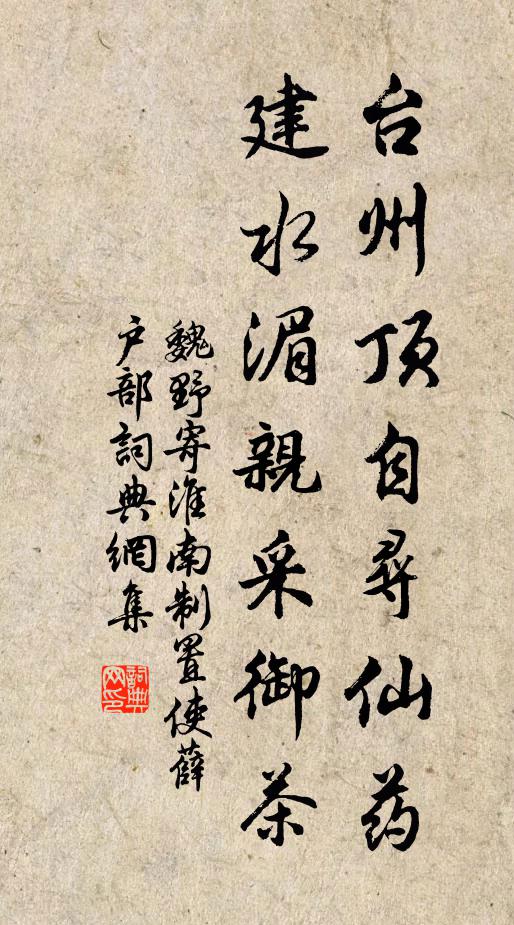 台州顶自尋仙药
建水湄親采御茶
魏野寄淮南制置使薛
户部詞典網集
詞典
网印